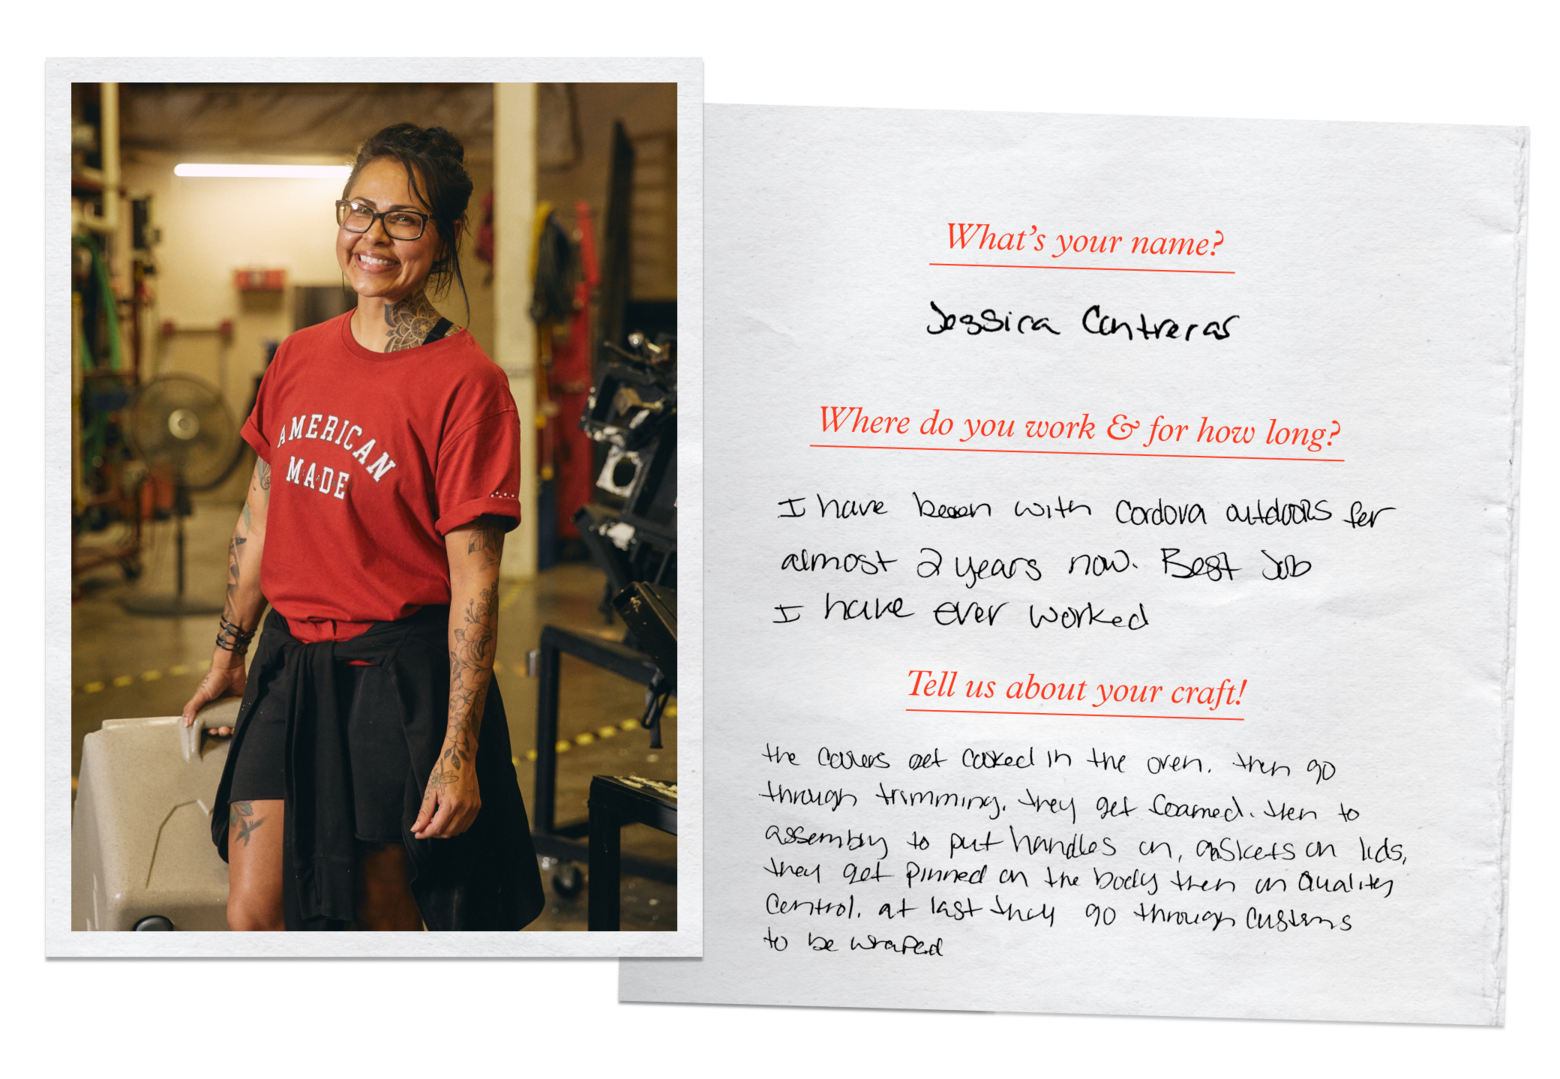 AMERICAN
MADE
What's your name?
Jessica Contreras
Where do you work & for how long?
I have been with Cordova outdoors for
almost 2 years now. Best Job
I have ever worked
Tell us about your craft!
the coolers get cooked in the oven. then go
through trimming. they get foamed. then to
assembly to put handles on, gaskets on lids,
they get pinned on the body then on Quality
Control. at last they go through customs
to be wraped